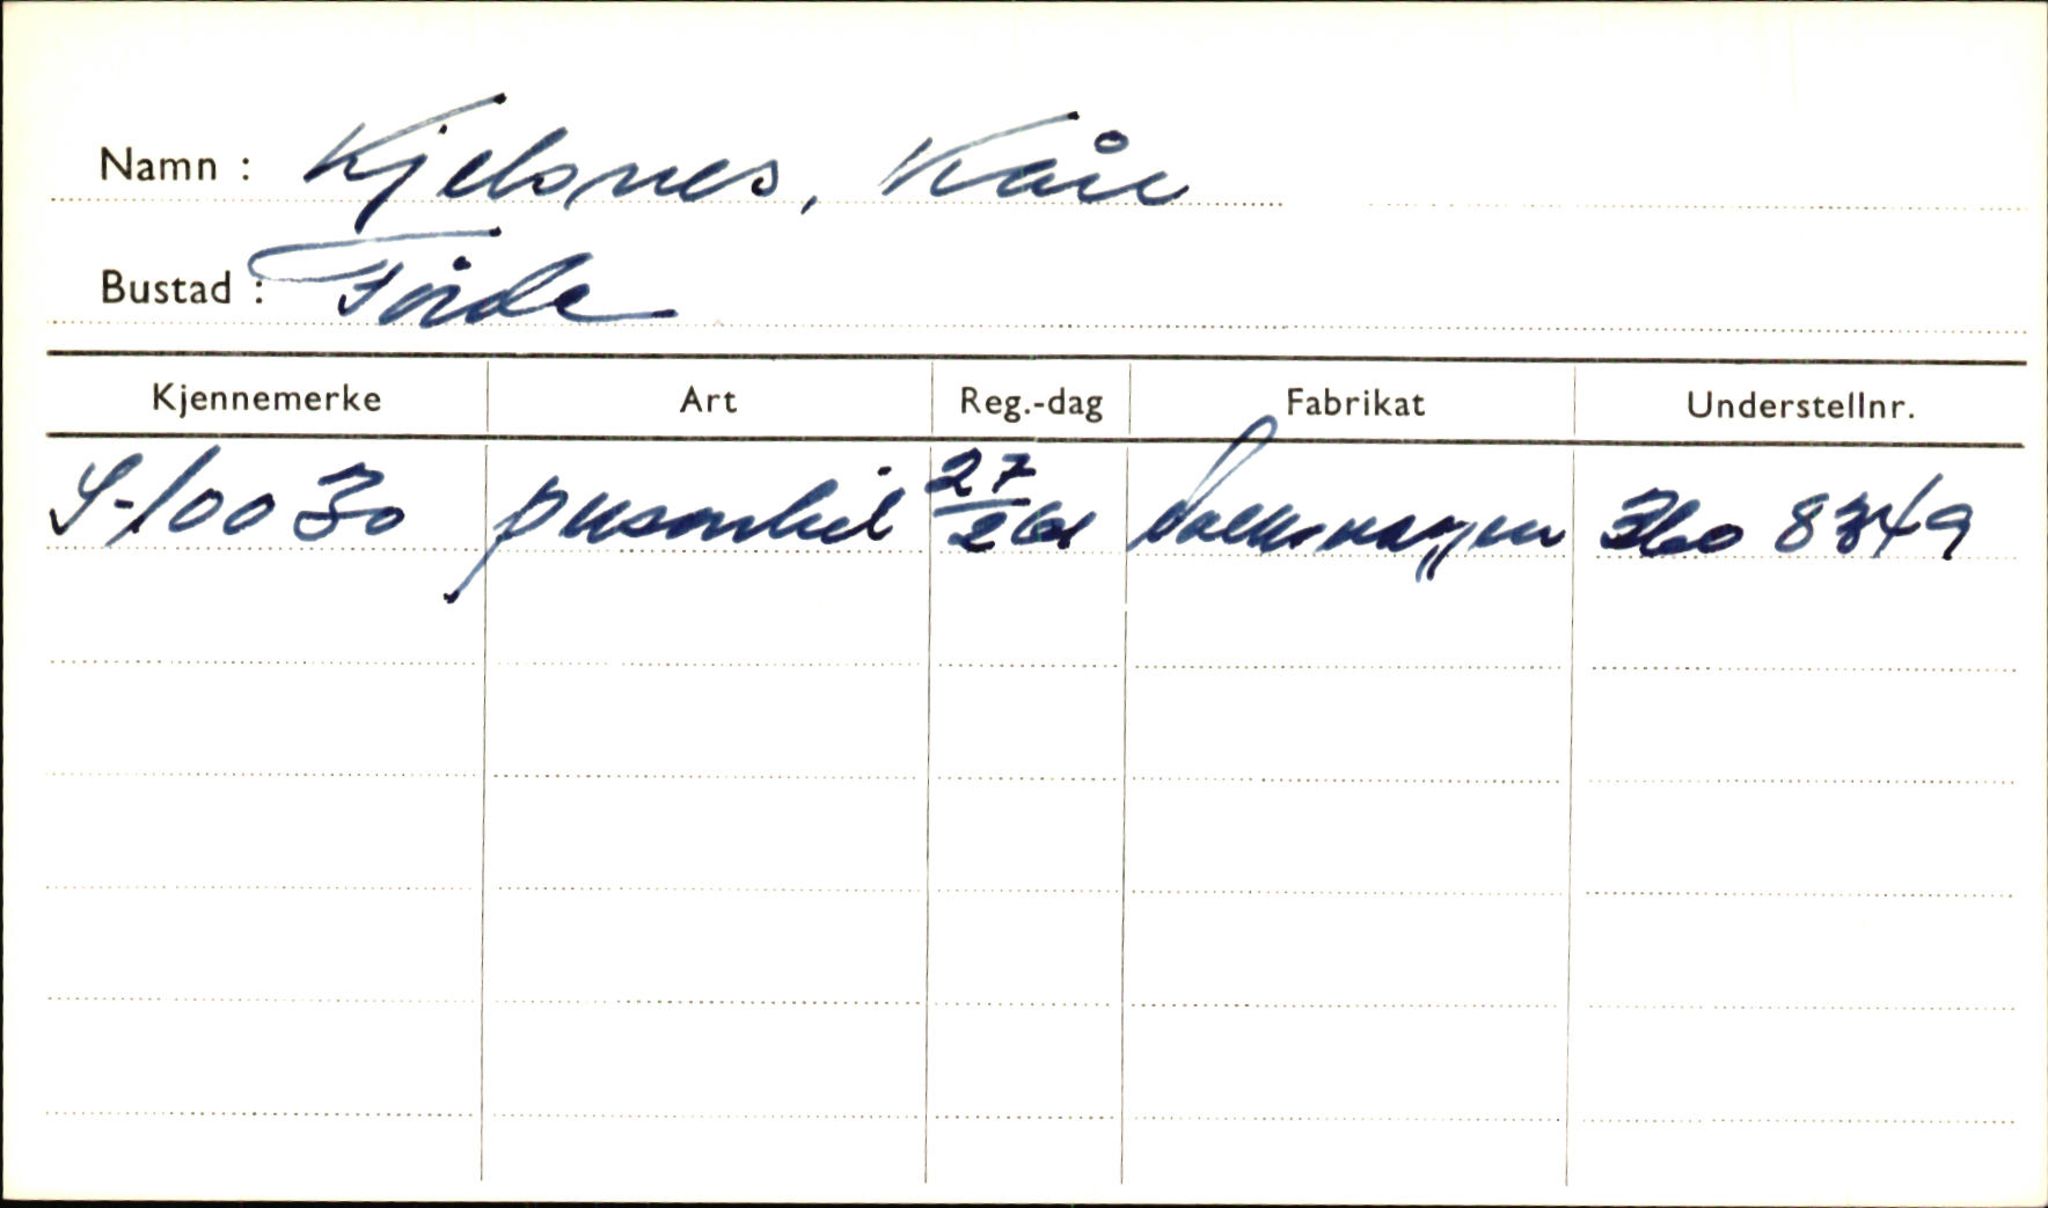 Namn : Kjelsnes, Kåre
Bustad : Förde
Kjennemerke Art Reg.-dag Fabrikat Understellnr.
S-10030 personbil 27/2 61 Volkswagen 360 8349